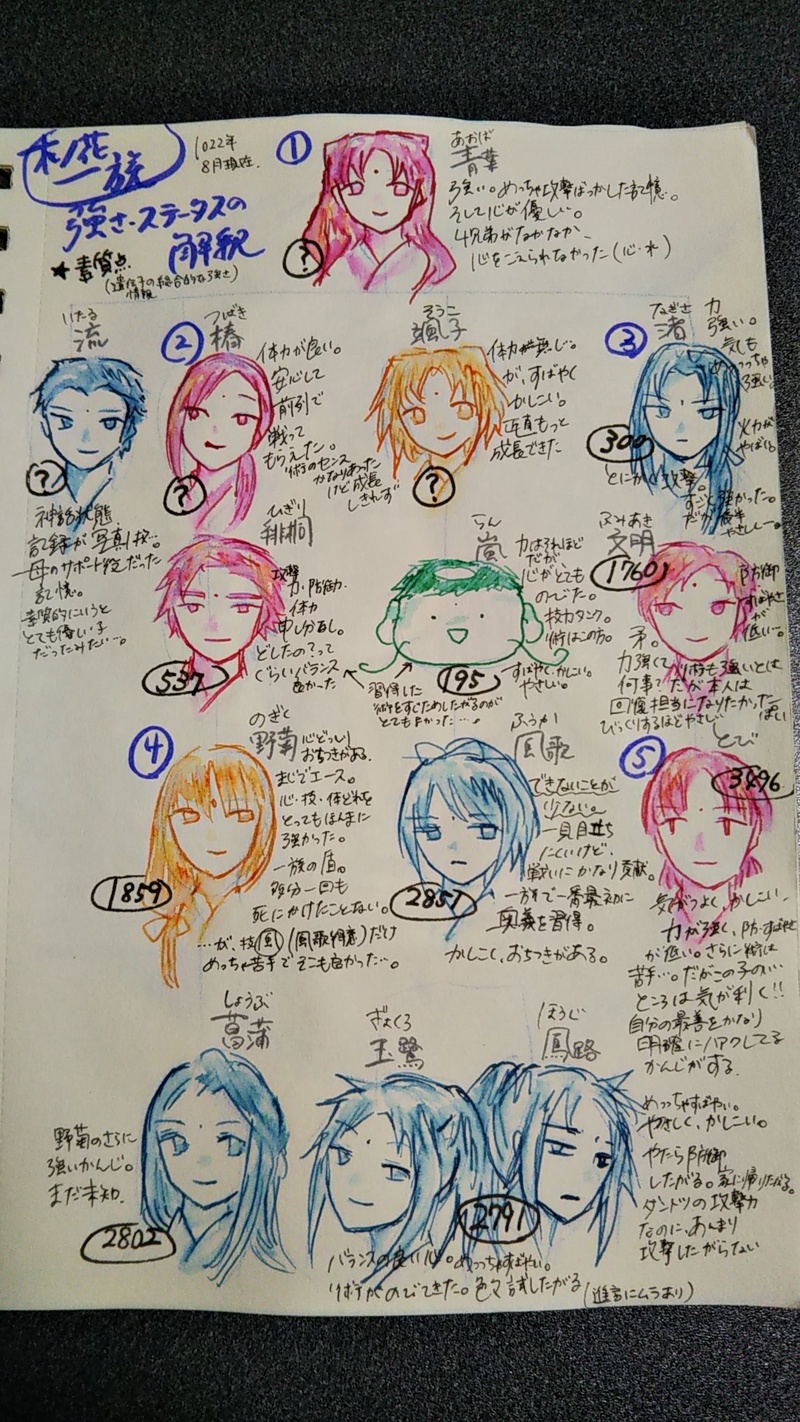 木ノ花
一族
1022年
8月現在.
強さ・ステータスの
解釈
★素質点
(遺伝子の総合的な強さ)
情報
①
あおば
青葉
強い。めっちゃ攻撃ばっかした記憶。
そして心が優しい。
4兄弟がなかなか、
心をこえられなかった(心・水)
?
いたる
流
?
神話状態
記録が写真1枚…
母のサポート役だった
記憶。
素質的にいうと
とても優しい子
だったみたい…。
②
つばき
椿
体力が良い。
安心して
前列で
戦って
もらえたん。
術のセンス
かなりあった
けど成長
しきれず
?
そうこ
颯子
体力が無し。
が、すばやく
かしこい。
正直もっと
成長できた
?
③
なぎさ
渚
力
強い。
気も
めっちゃ
強い。
火力が
やばい。
300
とにかく攻撃。
すごく強かった。
だが後半
やさしい…。
ひぎり
緋桐
攻撃
力・防御力・
体力
申し分なし。
どしたの?って
ぐらいバランス
良かった
537
らん
嵐
力はそれほど
だが、
心がとても
のびた。
技力タンク。
術はこの方。
すばやく、かしこい。
やさしい。
195
習得した
術をすぐためしたがるのが
とてもよかった…。
ふみあき
文明
1760
防御
すばやさ
が
低い…。
矛。
力強くて術も強いとは
何事?だが本人は
回復担当になりたかったっぽい
びっくりするほどやさしい
④
のぎく
野菊
心どっしり
おちつきがある。
まじでエース。
心・技・体どれを
とってもほんまに
強かった。
一族の盾。
多分一回も
死にかけたことない。
…が、技風(風歌得意)だけ
めっちゃ苦手でそこも良かった…。
1859
ふうか
風歌
できないことが
少ない。
一見目立ち
にくいけど、
戦いにかなり貢献。
一方で一番最初に
奥義を習得。
かしこく、おちつきがある。
2857
⑤
とび
3496
気がつよく、かしこい、
力が強く、防・すばや
が低い。さらに術は
苦手…。だがこの子のいい
ところは気が利く!!
自分の最善をかなり
明確にハアクしてる
かんじがする.
しょうぶ
菖蒲
野菊のさらに
強いかんじ。
まだ未知.
2802
ぎょくろ
玉鷺
バランスの良い心。めっちゃすばやい。
リボテがのびてきた。色々試したがる(進言にムラあり)
ほうじ
鳳路
2791
めっちゃすばやい。
やさしく、かしこい。
やたら防御
したがる。家に帰りたがる。
ダントツの攻撃力
なのに、あんまり
攻撃したがらない